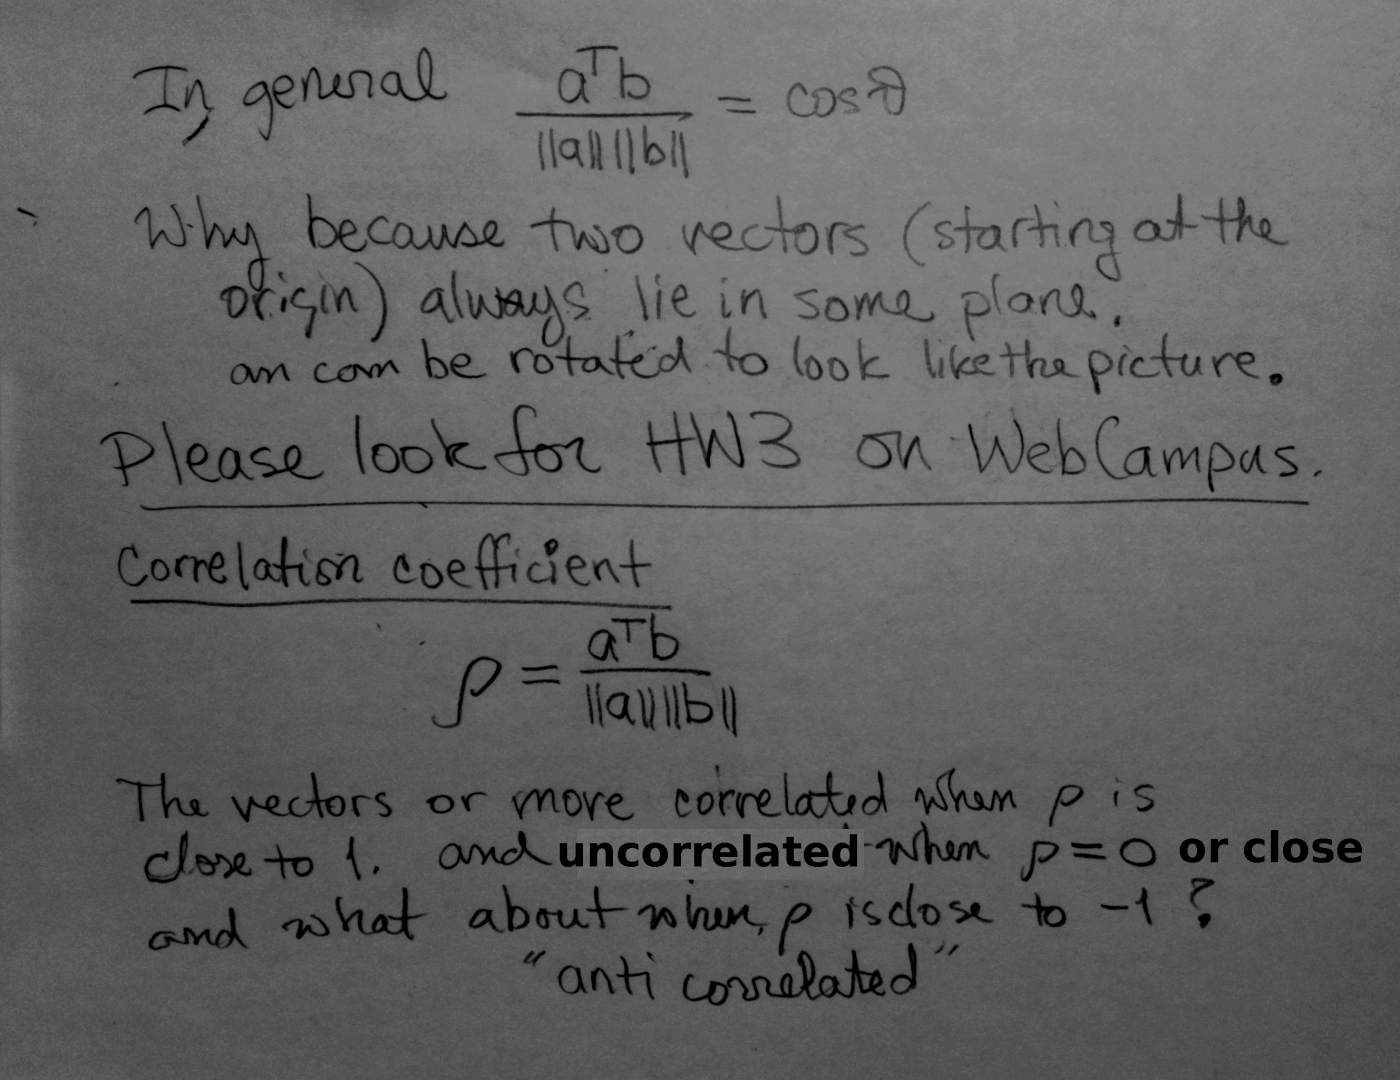 In general aᵀb / ||a|| ||b|| = cos θ
Why because two vectors (starting at the
origin) always lie in some plane.
an can be rotated to look like the picture.
Please look for HW3 on WebCampus.
Correlation coefficient
ρ = aᵀb / ||a|| ||b||
The vectors or more correlated when ρ is
close to 1. and uncorrelated when ρ=0 or close
and what about when, ρ is close to -1 ?
"anti correlated"